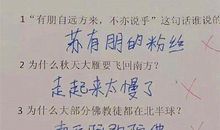 1“有朋自远方来，不亦说乎”这句话谁说的
苏有朋的粉丝
2 为什么秋天大雁要飞回南方？
走起来太慢了
3 为什么大部分佛教徒都在北半球？